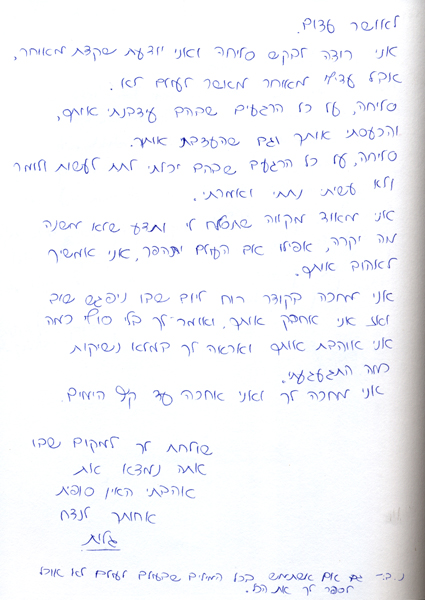 לאושר עצום.
אני רוצה לבקש סליחה ואני יודעת שקצת מאוחר,
אבל עדיף מאוחר מאשר לעולם לא.
סליחה, על כל הרגעים שבהם עיצבנתי אותך,
והכעסתי אותך וגם שהעצבת אותך.
סליחה, על כל הרגעים שבהם יכלתי לתת לעשות ולומר
ולא עשיתי נתתי ואמרתי.
אני מאוד מקווה שתסלח לי ותדע שלא משנה
מה יקרה, אפילו אם העולם יתהפך, אני אמשיך
לאהוב אותך.
אני מחכה בקוצר רוח ליום שבו ניפגש שוב
ואז אני אחבק אותך, ואומר לך בלי סוף כמה
אני אוהבת אותך ואראה לך במלא נשיקות
כמה התגעגעתי.
אני מחכה לך ואני אחכה עד קץ הימים.
שולחת לך למקום שבו
אתה נמצא את
אהבתי האין סופית
אחותך לנצח
גלית
נ.ב.- גם אם אשתמש בכל המילים שבעולם לעולם לא אוכל
לספר לך את הכל.